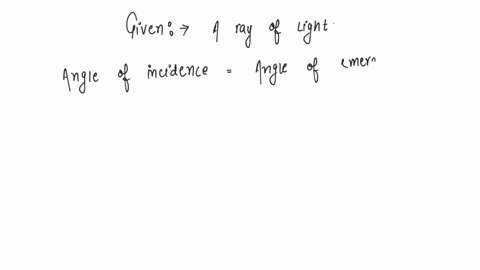 Given :→ A ray of light.
Angle of incidence = Angle of emer